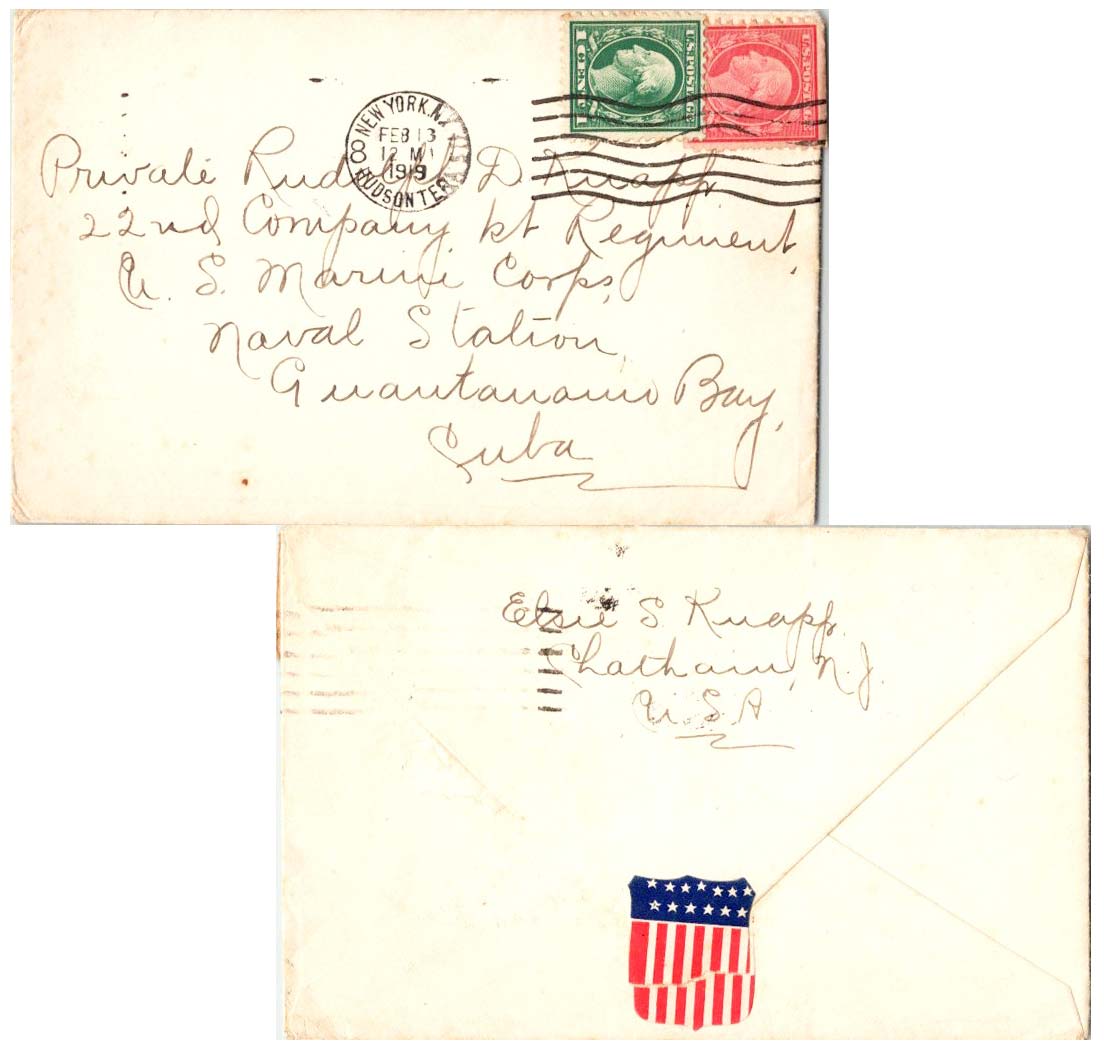 1 CENT 1
U.S. POSTAGE
U.S. POSTAGE
NEW YORK, N.Y.
FEB 13
12 M
1919
HUDSON TER. STA. 8
Private Rudolph D. Knapp
22nd Company 1st Regiment,
U. S. Marine Corps,
Naval Station,
Guantanamo Bay,
Cuba
Elsie S Knapp.
Chatham, N. J.
U. S. A